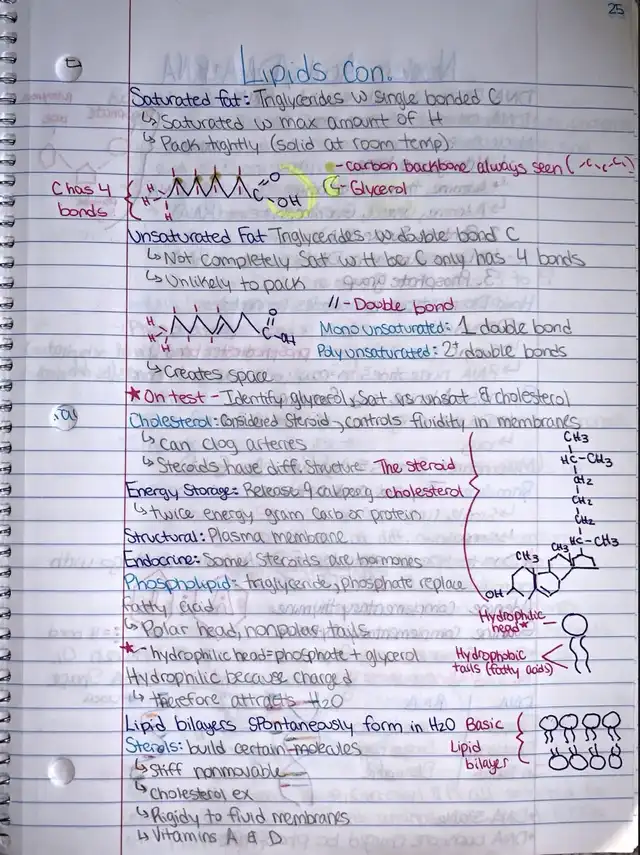 25
Lipids con.
Saturated fat: Triglycerides w single bonded C
↳ Saturated w max amount of H
↳ Pack tightly (solid at room temp)
- carbon backbone always seen (-c-c-c-)
- Glycerol
C has 4
bonds
H
H
H
C
O
OH
Unsaturated Fat Triglycerides w double bond C
↳ Not completely Sat w H bc C only has 4 bonds
↳ Unlikely to pack
// - Double bond
H
H
H
C
O
OH
Mono unsaturated: 1 double bond
Poly unsaturated: 2+ double bonds
↳ Creates space
★ On test - Identify glycerol, Sat vs unsat & cholesterol
Cholesterol: Considered Steroid, controls fluidity in membranes
↳ Can clog arteries
↳ Steroids have diff. Structure
The steroid
cholesterol
Energy Storage: Release 9 cal per g
↳ twice energy gram Carb or protein
Structural: Plasma membrane
Endocrine: Some Steroids are hormones
CH3
HC-CH3
CH2
CH2
CH2
HC-CH3
CH3
CH3
OH
Phospholipid: triglyceride, phosphate replace
fatty acid
↳ Polar head, nonpolar tails
★ - hydrophilic head = phosphate + glycerol
Hydrophilic because charged
↳ therefore attracts H2O
Hydrophilic
head*
Hydrophobic
tails (fatty acids)
Lipid bilayers spontaneously form in H2O
Basic
Lipid
bilayer
Sterols: build certain molecules
↳ Stiff nonmovable
↳ cholesterol ex
↳ Rigidy to fluid membranes
↳ Vitamins A & D